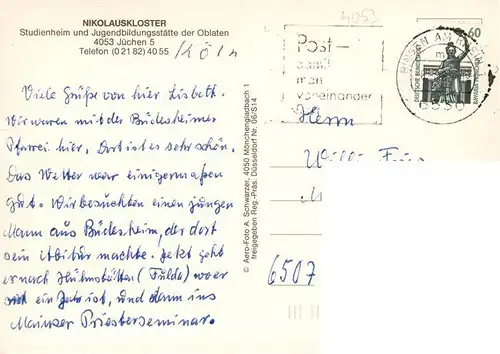 NIKOLAUSKLOSTER
Studienheim und Jugendbildungsstätte der Oblaten
4053 Jüchen 5
Telefon (0 21 82) 40 55
/Köln
4053
60
Post–
damit
man
voneinander
BINGEN AM RHEIN
DEUTSCHE BUNDESPOST
6530
Viele Grüße von hier Lisbeth.
Wir waren mit der Büdesheimer
Pfarrei hier. Dort ist es sehr schön.
Das Wetter war einigermaßen
gut. Wir besuchten einen jungen
Mann aus Büdesheim, der dort
sein Abitur machte. Jetzt geht
er nach Hünstätten (Fulde) wo er
ein Jahr ist, und dann ins
Mainzer Priesterseminar.
© Aero-Foto A. Schwarzer, 4050 Mönchengladbach 1
freigegeben Reg.-Präs. Düsseldorf Nr. 06/S14
Herrn
6507